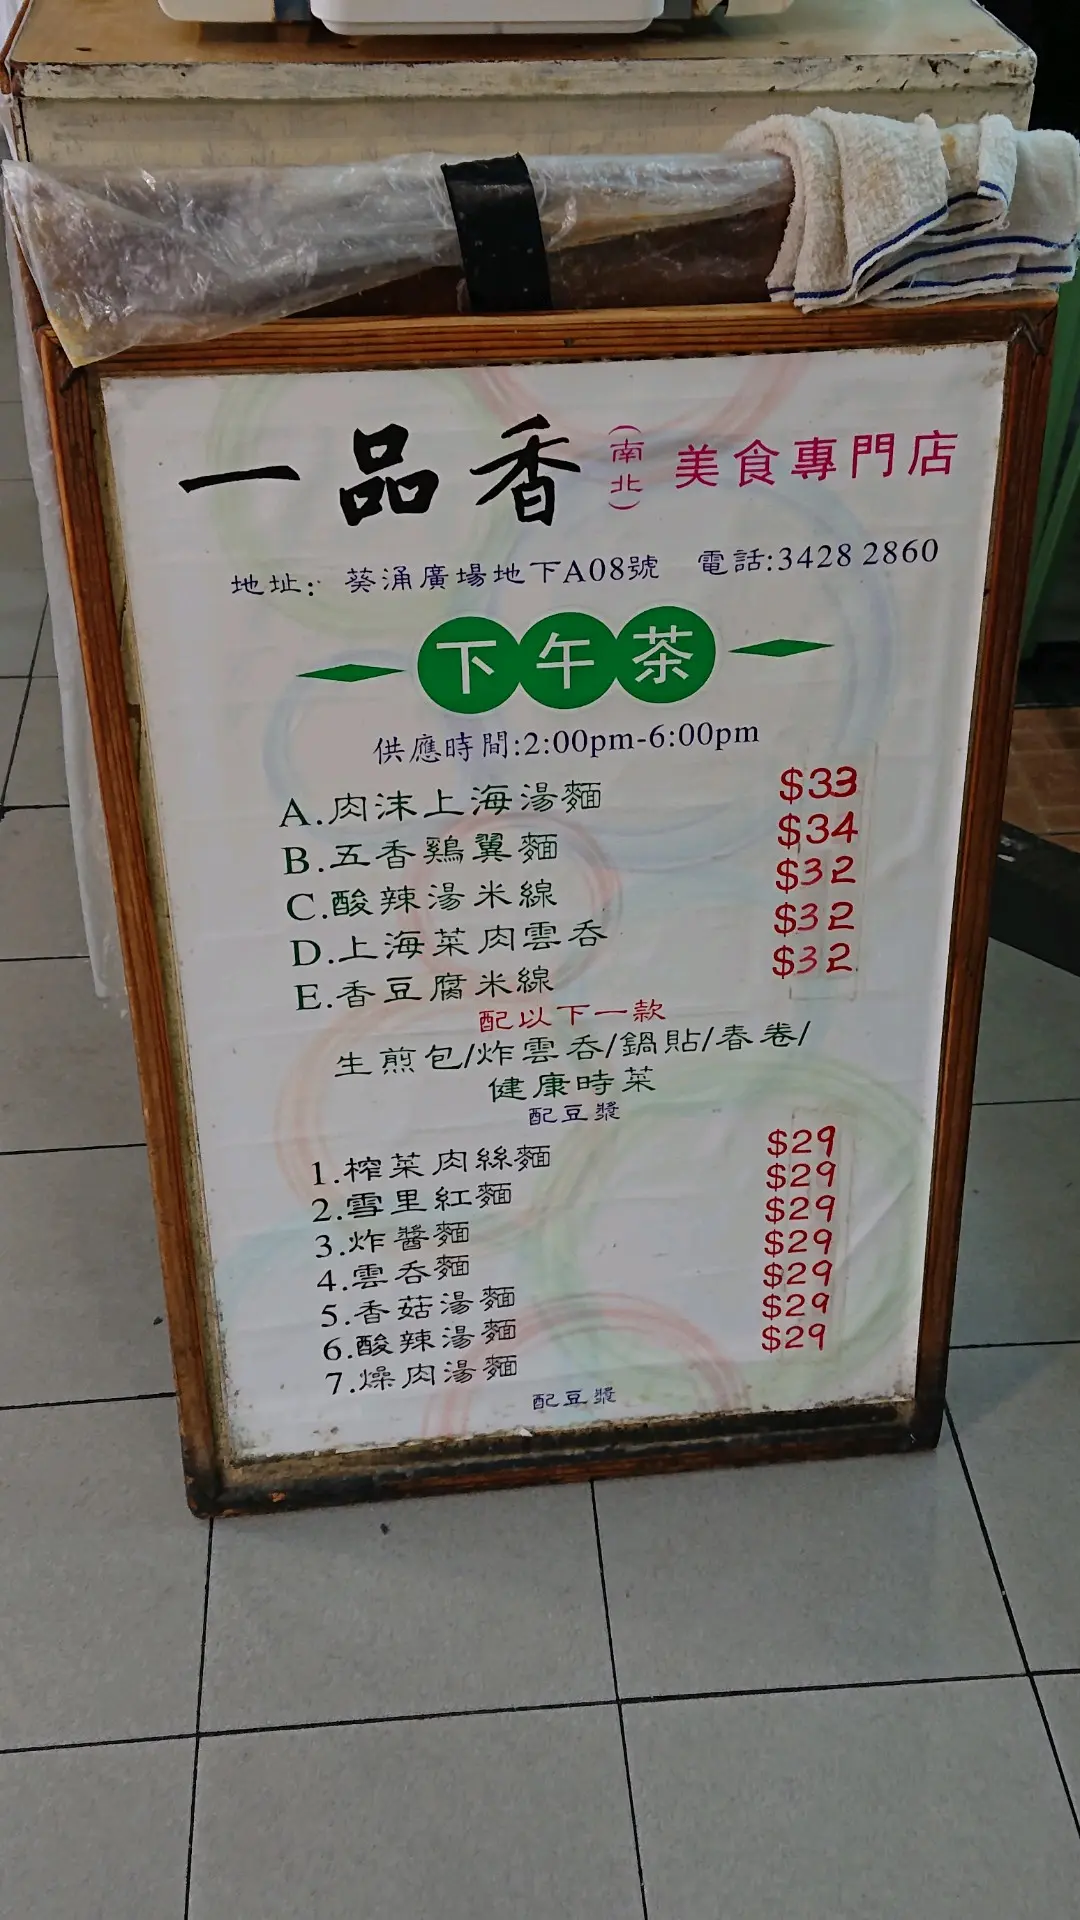 一品香（南北）美食專門店
地址: 葵涌廣場地下A08號 電話:3428 2860
下午茶
供應時間:2:00pm-6:00pm
A.肉沫上海湯麵 $33
B.五香鷄翼麵 $34
C.酸辣湯米線 $32
D.上海菜肉雲吞 $32
E.香豆腐米線 $32
配以下一款
生煎包/炸雲吞/鍋貼/春卷/
健康時菜
配豆漿
1.榨菜肉絲麵 $29
2.雪里紅麵 $29
3.炸醬麵 $29
4.雲吞麵 $29
5.香菇湯麵 $29
6.酸辣湯麵 $29
7.燥肉湯麵 $29
配豆漿